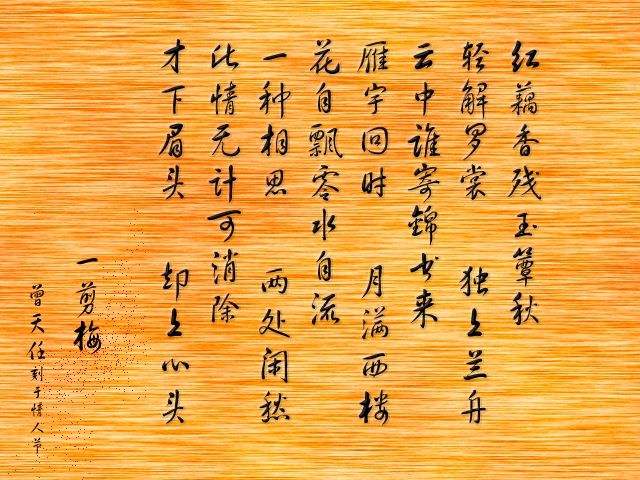 红藕香残玉簟秋
轻解罗裳 独上兰舟
云中谁寄锦书来
雁字回时 月满西楼
花自飘零水自流
一种相思 两处闲愁
此情无计可消除
才下眉头 却上心头
一剪梅
曾天任刻于情人节